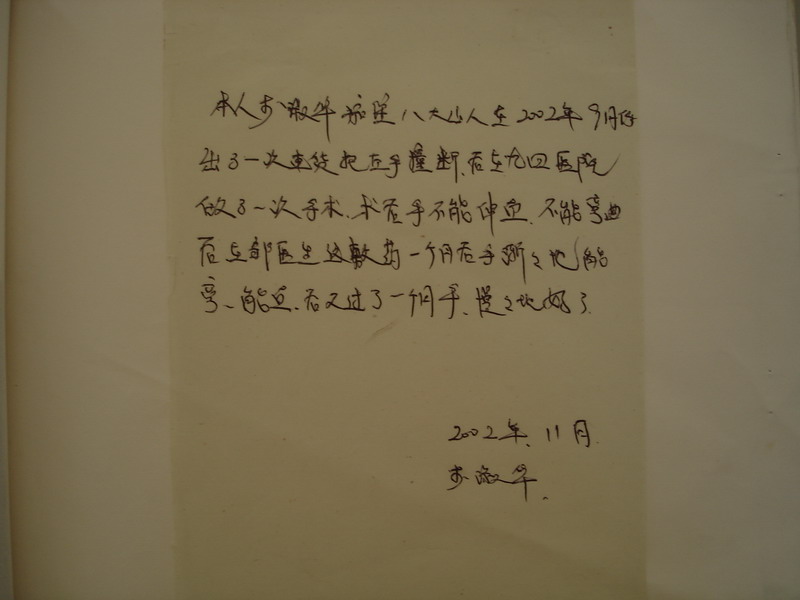 本人 淑华 家住八大山人在2002年9月份
出了一次车 把左手撞断、后在九四医院
做了一次手术、术后手不能伸直、不能弯曲
后在邹医生这敷药一个月后手渐々地能
弯、能直、后又过了一个月手、慢々地好了
2002年、11月
 淑华